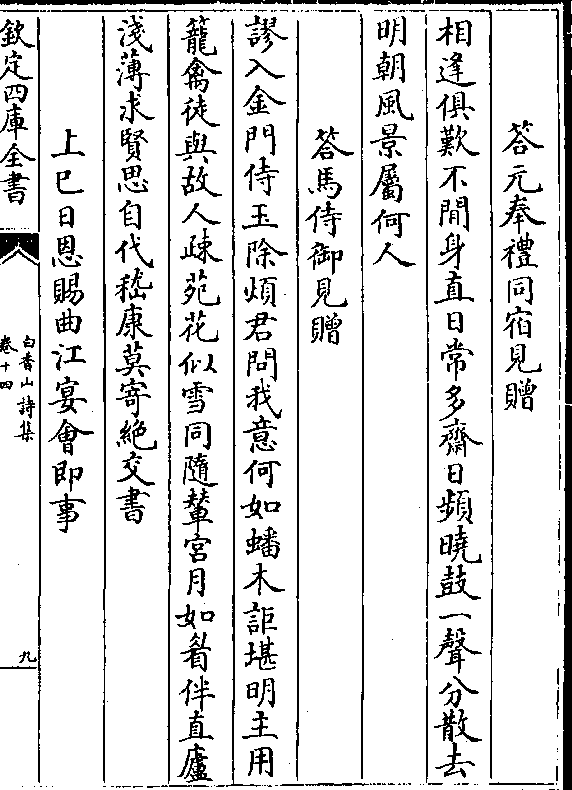 答元奉禮同宿見贈
相逢俱歎不閒身直日常多齋日頻曉鼓一聲分散去
明朝風景屬何人
答馬侍御見贈
謬入金門侍玉除煩君問我意何如蟠木詎堪明主用
籠禽徒與故人疎苑花似雪同隨輦宮月如眉伴直廬
淺薄求賢思自代嵇康莫寄絶交書
上巳日恩賜曲江宴會即事
欽定四庫全書
白香山詩集
卷十四
九